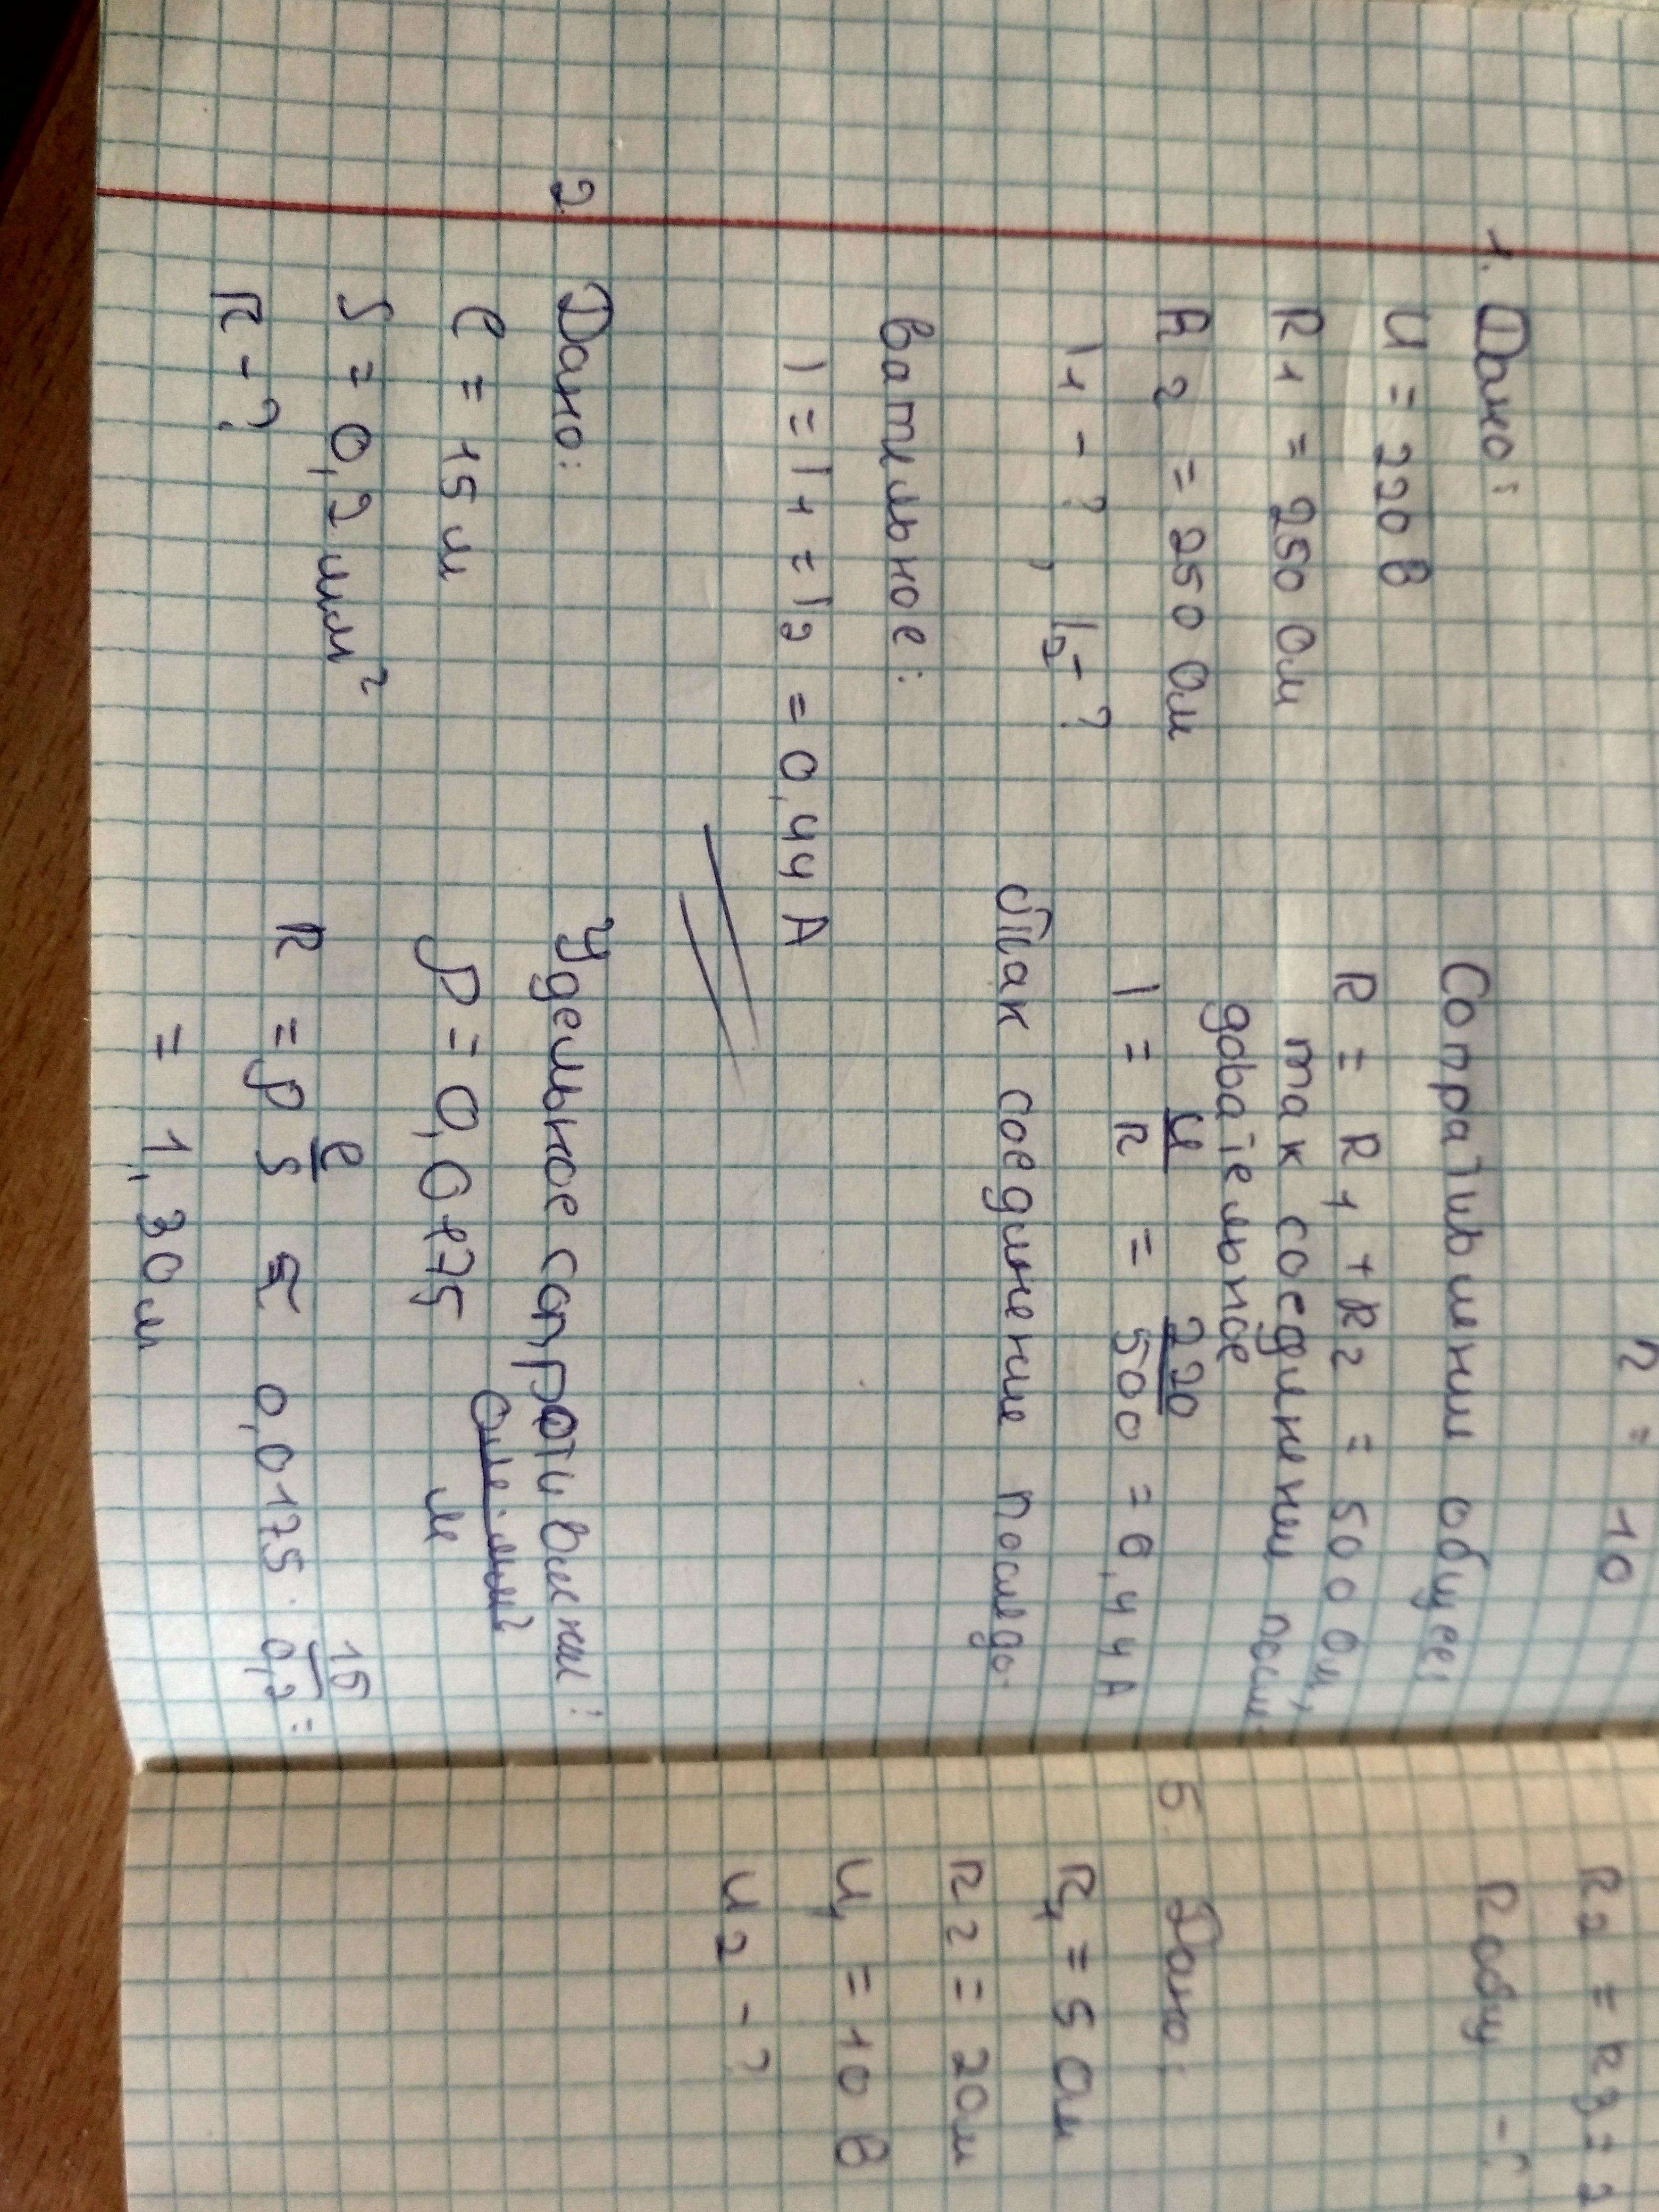 R = 10
1. Дано:
U = 220 В
R1 = 250 Ом
R2 = 250 Ом
I1 - ? , I2 - ?
Сопративлении общее:
R = R1 + R2 = 500 Ом,
так соединении после-
довательное
I = U/R = 220/500 = 0,44 А
Так соединение последо-
вательное:
I = I1 = I2 = 0,44 А
2 Дано:
l = 15 м
S = 0,2 мм²
R - ?
Удельное сопротивлении:
ρ = 0,0175 Ом·мм²/м
R = ρ l/S = 0,0175 · 15/0,2 =
= 1,3 Ом
R2 = R3 =
Rобщ - ?
5. Дано:
R1 = 5 Ом
R2 = 2 Ом
U1 = 10 В
U2 - ?